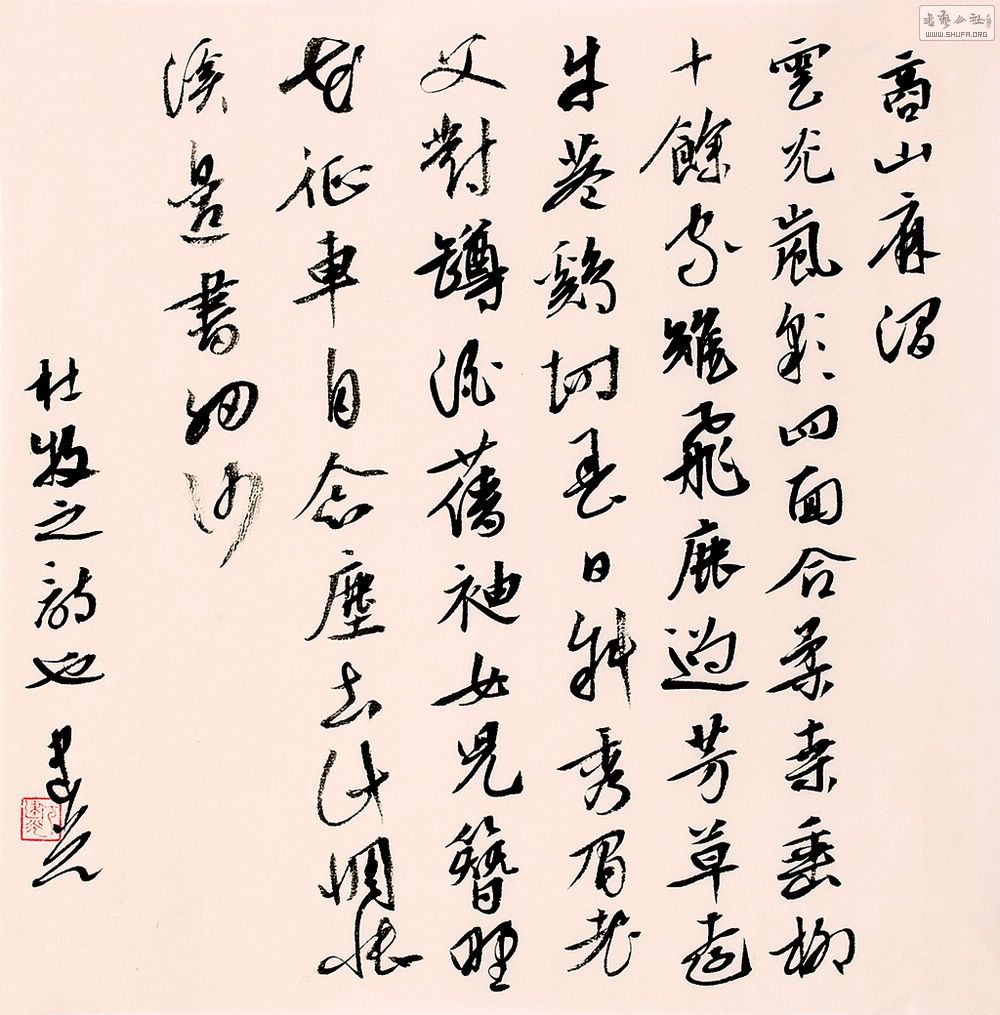 書藝公社
WWW.SHUFA.ORG
商山麻澗
雲光嵐彩四面合柔桑垂柳
十餘家雉飛鹿過芳草遠
牛巷鷄塒春日斜秀眉老
父對罇酒蒨袖女兒簪野
花征車自念塵土計惆悵
溪邊書細沙
杜牧之詩也 建光